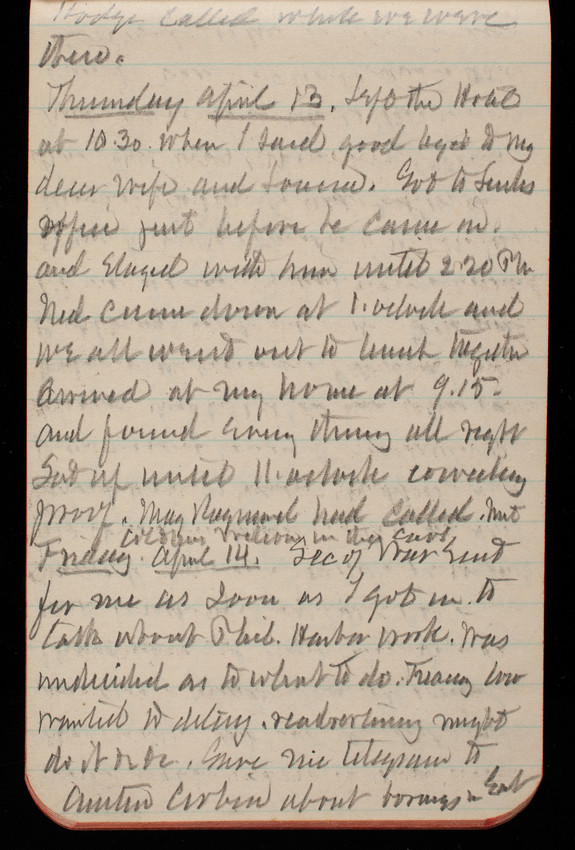 Hodge called while we were
there.
Thursday April 13. Left the Hotel
at 10.30. when I said good bye to my
dear wife and Louise. Got to
office just before he came in.
and stayed with him until 2.20 PM
Ned came down at 1. oclock and
we all went out to lunch together
Arrived at my home at 9.15.
and found every thing all right
Sat up until 11. oclock correcting
proof. May Raymond had called. Met
Colonel Wilson in the cars.
Friday. April 14. Sec of War sent
for me as soon as I got in. to
talk about Phil. Harbor work. Was
undecided as to what to do. Treasy low
wanted to delay. readvertising might
do it or de. Gave me telegram to
Austin Corbin about borings in East